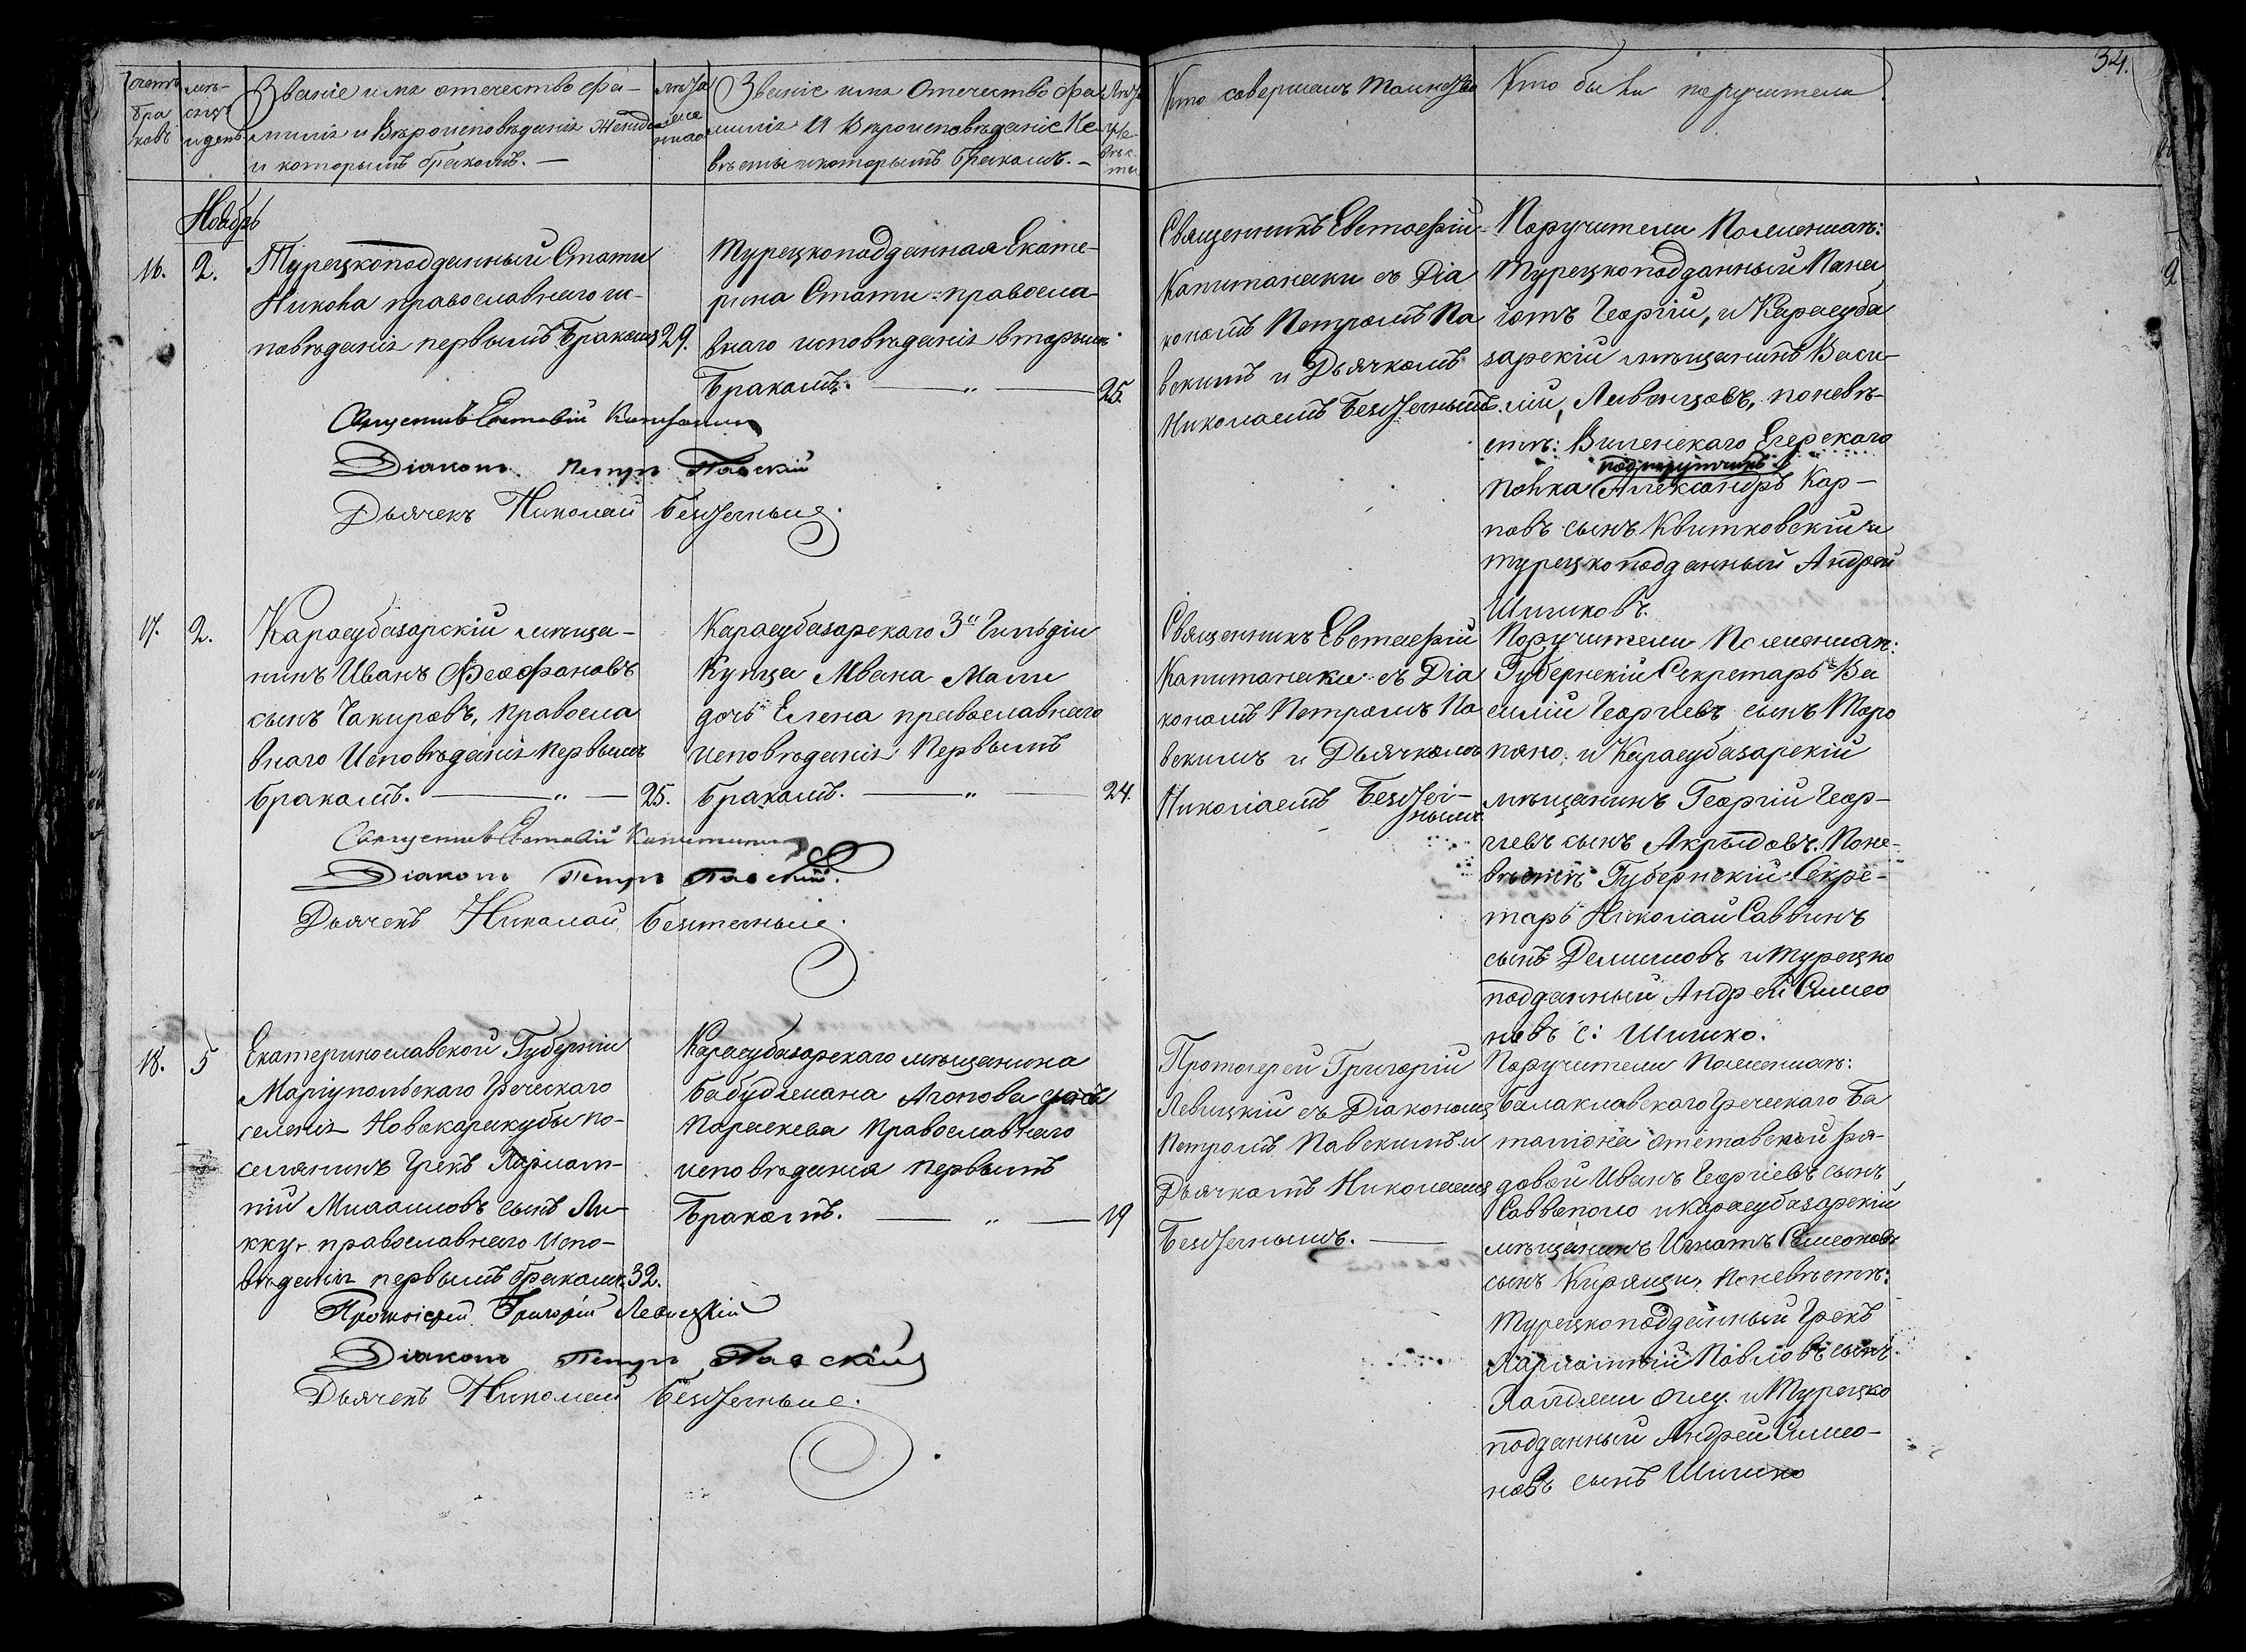 34.
Счетъ браковъ
Мѣсяцъ и день
Званіе имя отечество фа-
милія и Вѣроисповѣданія Жениха
и которымъ бракомъ. —
Лѣта жениха
Званіе имя Отечество фа
милія и Вѣроисповѣданіе Не-
вѣсты и которымъ бракомъ. —
Лѣта Невѣсты
Кто совершалъ Таинство
Кто были поручители.
Ноябрь
16.
2.
Турецкоподданный Стати
Никола православнаго ис-
повѣданія первымъ бракомъ
29.
Турецкоподданная Екате-
рина Стати православ-
внаго исповѣданія вторымъ
бракомъ. — „ —
25.
Священникъ Евстафій
Капитанаки съ Діа
кономъ Петромъ Па
вскимъ и Дьячкомъ
Николаемъ Безсчетнымъ
Поручители По женихѣ:
Турецкоподданный Пана
іотъ Георгій, и Карасуба
зарскій мѣщанинъ Васи-
лій Ливенцовъ, по невѣ-
стѣ: Виленскаго Егерскаго
подпоручикъ
полка Александръ Кар-
повъ сынъ Квитковскій и
турецкоподданный Андрей
Шишковъ.
Священникъ Евстафій Капитанаки
Діаконъ Петръ Павскій
Дьячекъ Николай
17.
2.
Карасубазарскій мѣща-
нинъ Иванъ Феофановъ
сынъ Чакировъ, правосла
внаго Исповѣданія первымъ
бракомъ. — „ —
25.
Карасубазарскаго 3й гильдіи
Купца Ивана Мали
дочь Елена православнаго
исповѣданія Первымъ
бракомъ. — „ —
24.
Священникъ Евстафій
Капитанаки съ Діа
кономъ Петромъ Па
вскимъ и Дьячкомъ
Николаемъ
Поручители По женихѣ:
Губернскій Секретарь Ва
силій Георгіевъ сынъ Таро
пяно, и Карасубазарскій
мѣщанинъ Георгій Геор-
гіевъ сынъ Акрыдовъ. По не-
вѣстѣ Губернскій Секре-
тарь Николай Саввинъ
сынъ и Турецко
подданный Андрей Симео
новъ с: Шишко.
Священникъ Евстафій Капитанаки
Діаконъ Петръ Павскій.
Дьячекъ Николай
18.
5
Екатеринославской Губерніи
Маріупольскаго Греческаго
селенія Новокаракубы по-
селянинъ Грекъ Харлам-
пій сынъ Ли-
кку, православнаго Испо-
вѣданія первымъ бракомъ
32.
Карасубазарскаго мѣщанина
Агопова дочь
Параскева Православнаго
исповѣданія первымъ
бракомъ. — „ —
19
Протоіерей Григорій
Левицкій съ Діакономъ
Петромъ Павскимъ и
Дьячкомъ Николаемъ
Поручители По женихѣ:
Балаклавскаго Греческаго Ба
таліона отставной ря-
довой Иванъ Георгіевъ сынъ
Саввополо и Карасубазарскій
мѣщанинъ Игнатъ Симеоновъ
сынъ По невѣстѣ:
Турецкоподданный Грекъ
Харлампій Павловъ сынъ
оглу. и Турецко
подданный Андрей Симео-
новъ сынъ Шишко
Протоіерей Григорій Левицкій
Діаконъ Петръ Павскій
Дьячекъ Николай